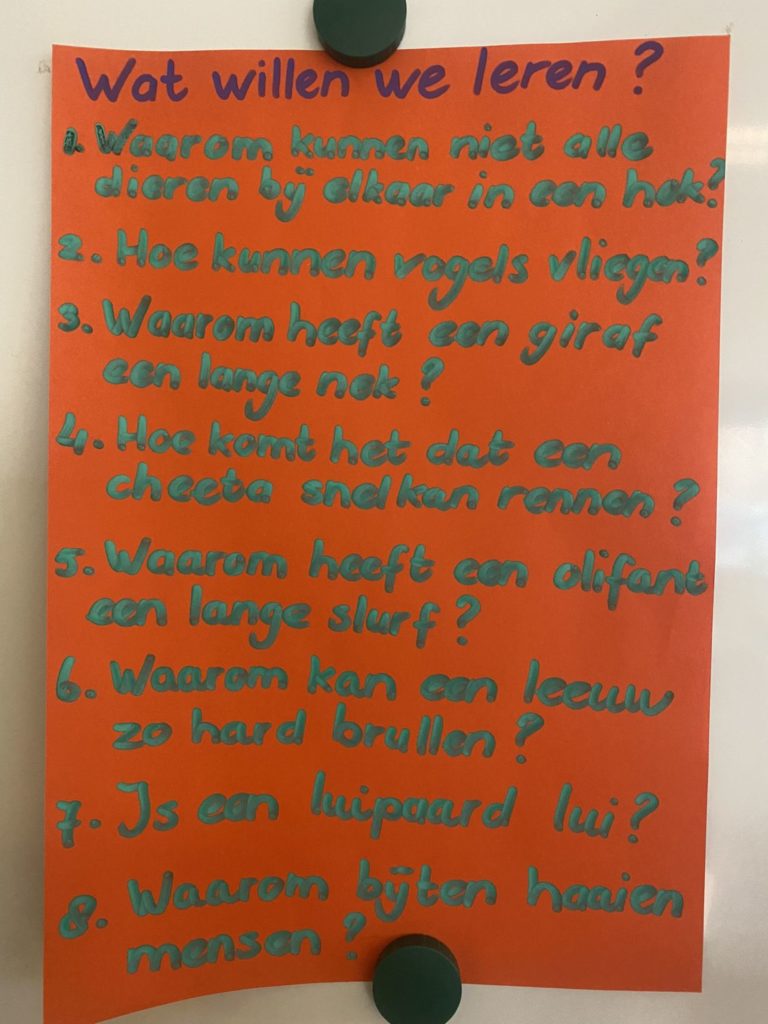 Wat willen we leren ?
1. Waarom kunnen niet alle
dieren bij elkaar in een hok?
2. Hoe kunnen vogels vliegen?
3. Waarom heeft een giraf
een lange nek ?
4. Hoe komt het dat een
cheeta snel kan rennen ?
5. Waarom heeft een olifant
een lange slurf ?
6. Waarom kan een leeuw
zo hard brullen ?
7. Is een luipaard lui ?
8. Waarom bijten haaien
mensen ?